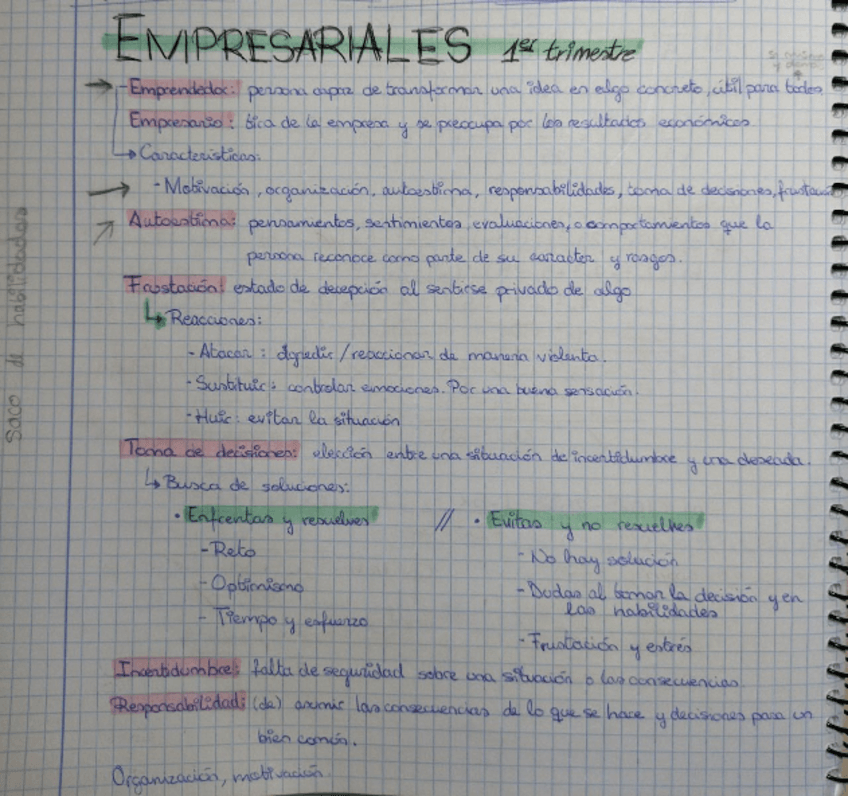 EMPRESARIALES 1er trimestre
-Emprendedor: persona capaz de transformar una idea en algo concreto, útil para todos.
Empresario: tira de la empresa y se preocupa por los resultados económicos
→ Características:
- Motivación, organización, autoestima, responsabilidades, toma de decisiones,
Autoestima: pensamientos, sentimientos, evaluaciones, comportamientos que la
persona reconoce como parte de su caracter y rasgos.
Frustación: estado de decepción al sentirse privado de algo
↳ Reacciones:
- Atacar: /reaccionar de manera violenta.
- Sustituir: controlar emociones. Por una buena sensación.
- Huir: evitar la situación
Toma de decisiones: elección entre una situación de incertidumbre y una deseada.
↳ Busca de soluciones:
• Enfrentas y resuelves // • Evitas y no resuelves
- Reto - No hay solución
- Optimismo - Dudas al tomar la decisión y en
las habilidades
- Tiempo y esfuerzo
- Frustación y estrés
Incertidumbre: falta de seguridad sobre una situación o las consecuencias.
Responsabilidad: (de) asumir las consecuencias de lo que se hace y decisiones para un
bien común.
Organización, motivación.
Saco de habilidades